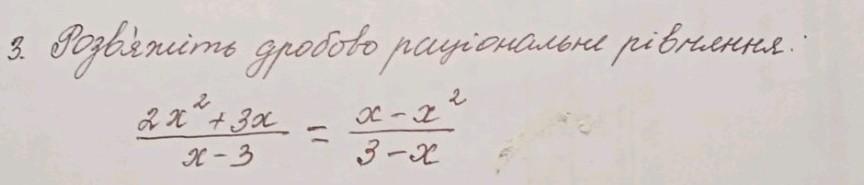 3. Розв'яжіть дробово раціональне рівняння:
(2x² + 3x)/(x - 3) = (x - x²)/(3 - x)